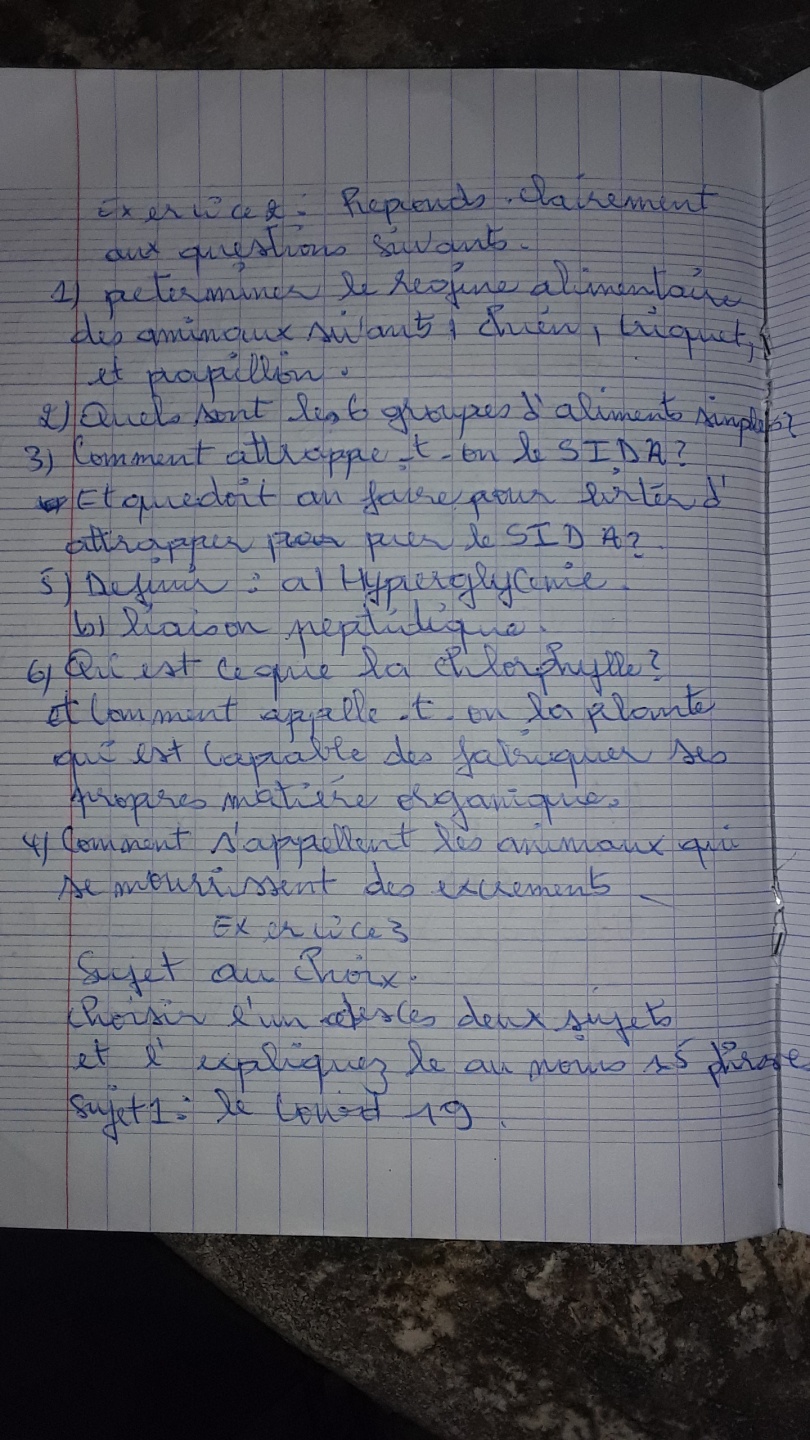 Exercice 2: Reponds clairement
aux questions suivants.
1) Determiner le regime alimentaire
des animaux suivants, chien, criquet,
et papillon.
2) Quels sont les 6 groupes d'aliments simples?
3) Comment attrappe-t-on le SIDA?
Et que doit on faire pour eviter d'
attrapper le SIDA?
5) Definir: a) Hyperglycemie.
b) liaison peptidique.
6) Qu'est ce que la chlorphylle?
et Comment appelle-t-on la plante
qui est capable des fabriquer ses
propres matière organique.
4) Comment s'appellent les animaux qui
se nourissent des excrements
Exercice 3
Sujet au choix.
Choisir l'un des ces deux sujets
et l'expliquez le au moins 15 phrase
Sujet 1: le Covid 19.